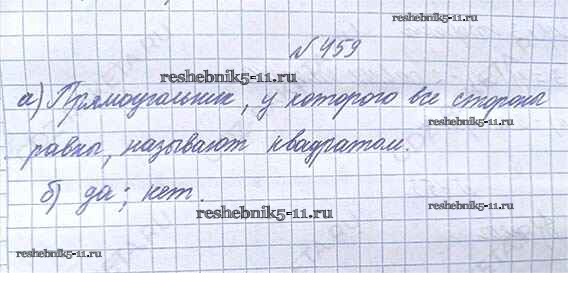 reshebnik5-11.ru
№459
reshebnik5-11.ru
а) Прямоугольник, у которого все стороны
reshebnik5-11.ru
равны, называют квадратом.
б) да; нет.
reshebnik5-11.ru
reshebnik5-11.ru
reshebnik5-11.ru